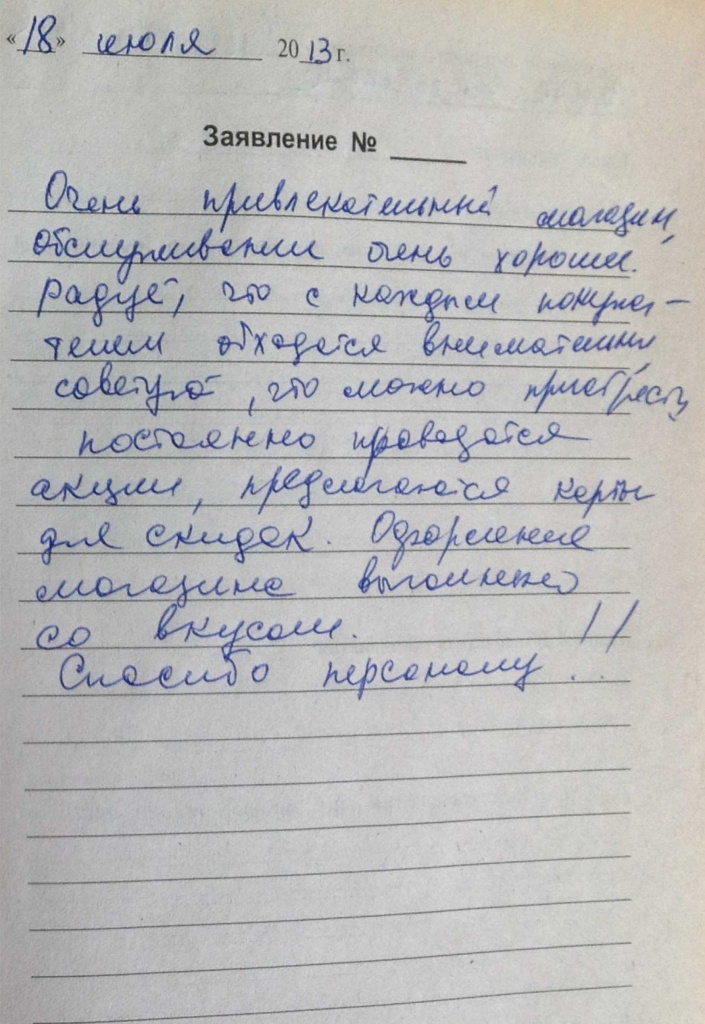 «18» июля 2013 г.
Заявление №
Очень привлекательный магазин,
обслуживание очень хорошее.
Радует, что с каждым покупа-
телем обходятся внимательно,
советуют, что можно приобрести,
постоянно проводятся
акции, предлагаются карты
для скидок. Оформление
магазина выполнено
со вкусом.
Спасибо персоналу!!